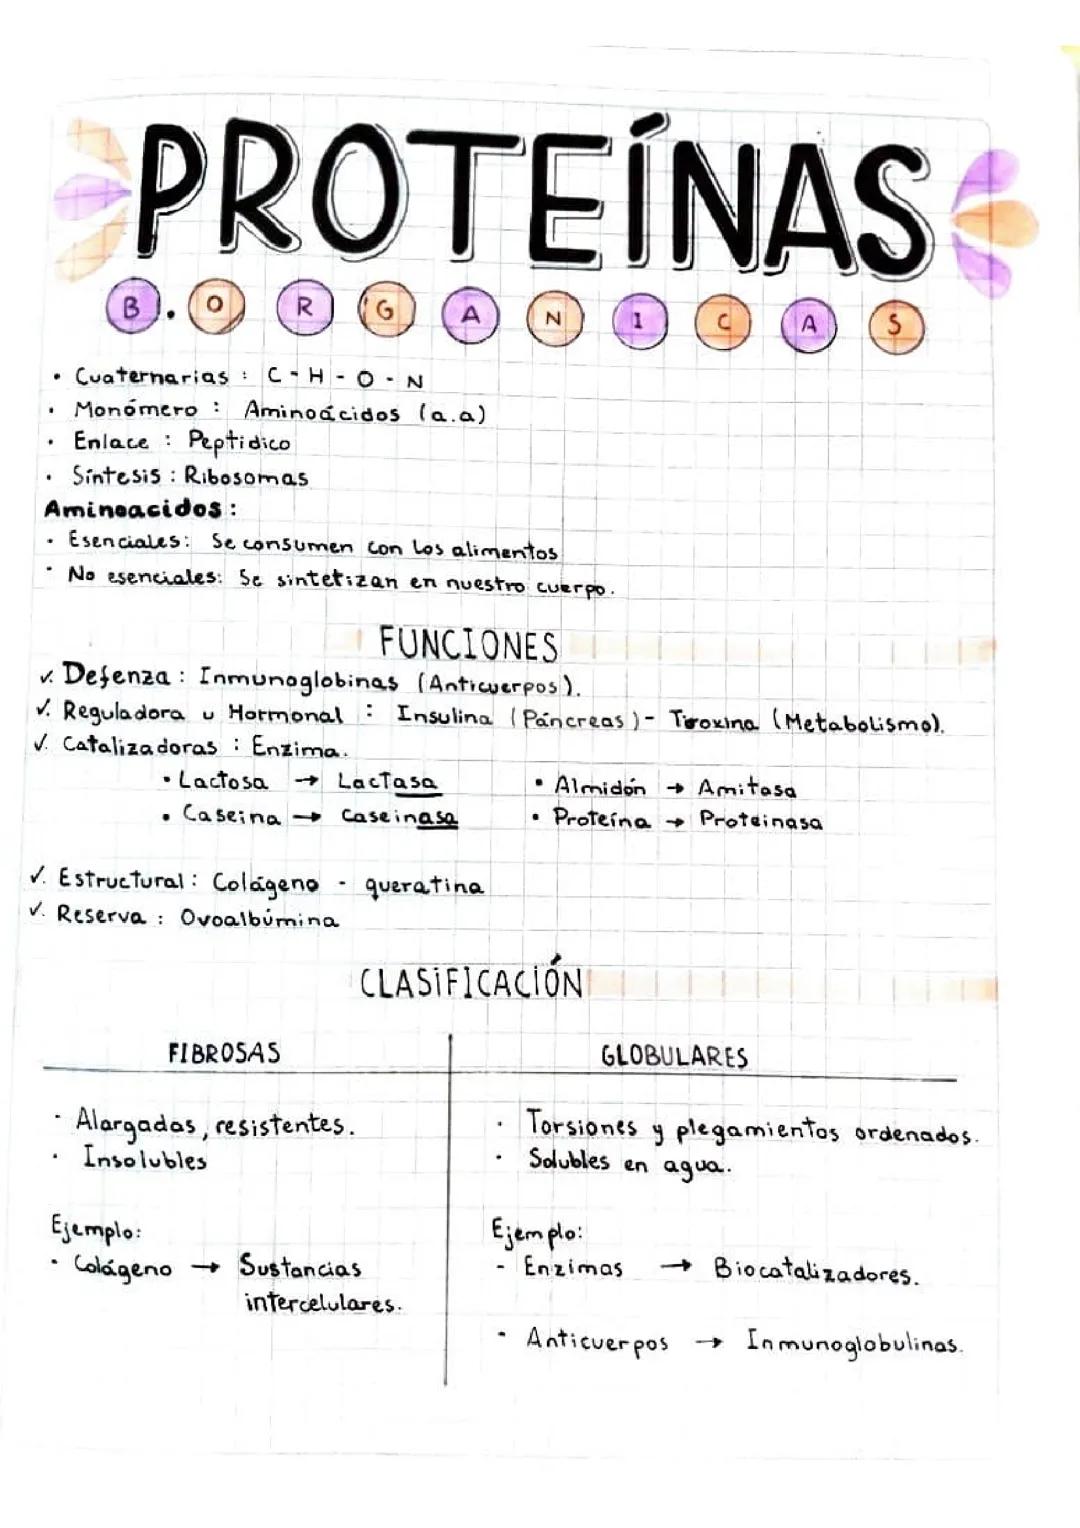 PROTEÍNAS
B. ORGANICAS
• Cuaternarias : C - H - O - N
• Monómero : Aminoácidos (a.a)
• Enlace : Peptidico
• Síntesis : Ribosomas
Aminoacidos :
• Esenciales: Se consumen con los alimentos
• No esenciales: Se sintetizan en nuestro cuerpo.
FUNCIONES
✓. Defenza : Inmunoglobinas (Anticuerpos).
✓. Reguladora u Hormonal : Insulina (Páncreas) - Tiroxina (Metabolismo).
✓. Catalizadoras : Enzima.
• Lactosa → Lactasa • Almidón → Amitasa
• Caseina → Caseinasa • Proteína → Proteinasa
✓. Estructural : Colágeno - queratina
✓. Reserva : Ovoalbúmina
CLASIFICACIÓN
FIBROSAS GLOBULARES
• Alargadas, resistentes. • Torsiones y plegamientos ordenados.
• Insolubles • Solubles en agua.
Ejemplo: Ejemplo:
• Colágeno → Sustancias - Enzimas → Biocatalizadores.
intercelulares.
• Anticuerpos → Inmunoglobulinas.